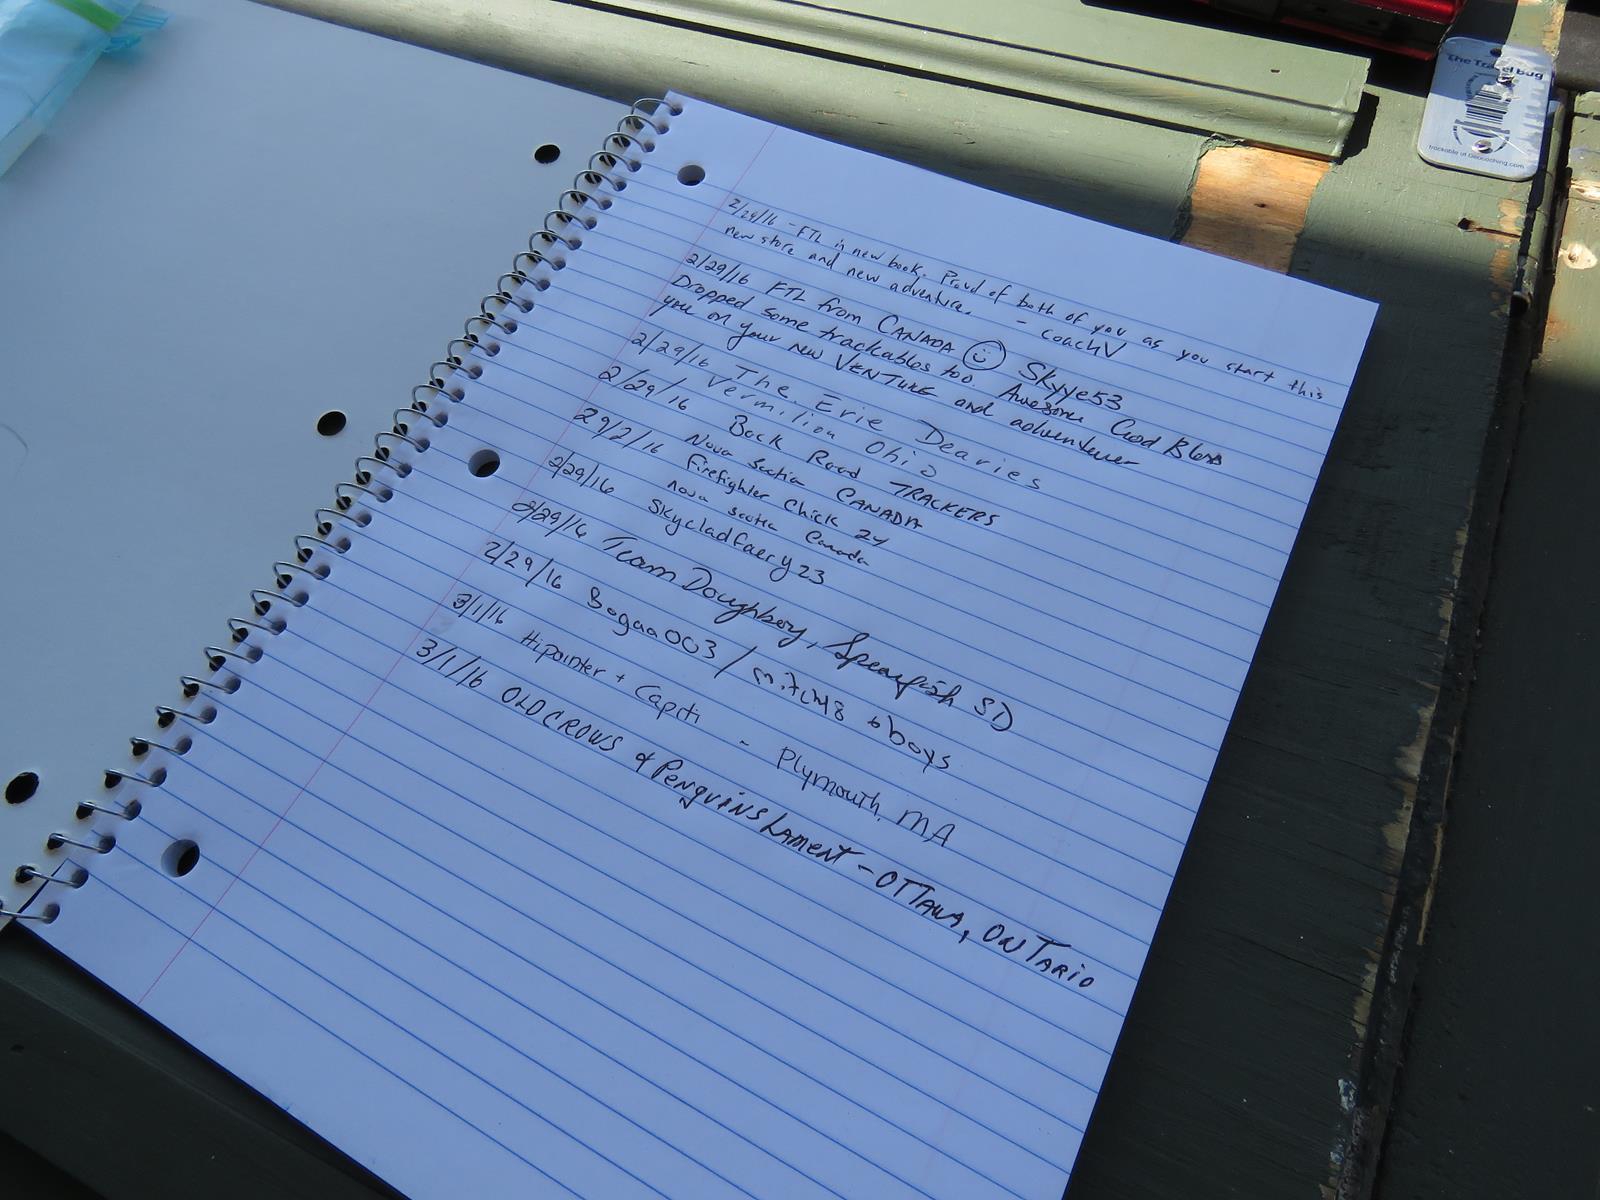 2/29/16 - FTL in new book. Proud of both of you as you start this
new store and new adventure. - coachV
2/29/16 FTL from CANADA Skyye53
Dropped some trackables too. Awesome God Bless
you on your new VENTURE and adventure
2/29/16 The Erie Dearies
Vermilion Ohio
2/29/16 Back Road TRACKERS
Nova Scotia CANADA
29/2/16 Firefighter Chick 24
Nova Scotia Canada
2/29/16 Skycladfaery23
2/29/16 Team Doughboy, Spearfish SD
2/29/16 Bogaa003 / bboys
3/1/16 Hipointer + Capti - Plymouth, MA
3/1/16 OLDCROWS & PENGUINS LAMENT - OTTAWA, ONTARIO
The Travel Bug
trackable at Geocaching.com